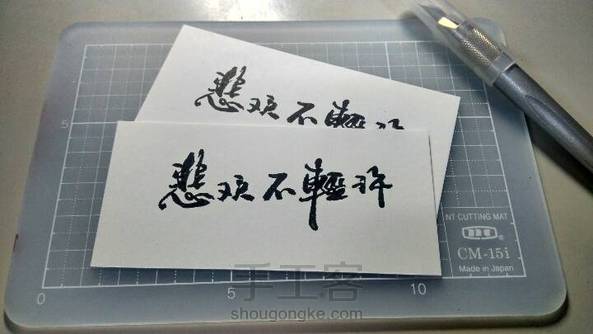 悲欢不輕
悲欢不輕许
5
NT CUTTING MAT
CM-15i
Made in Japan
0 5 10
手工客
shougongke.com